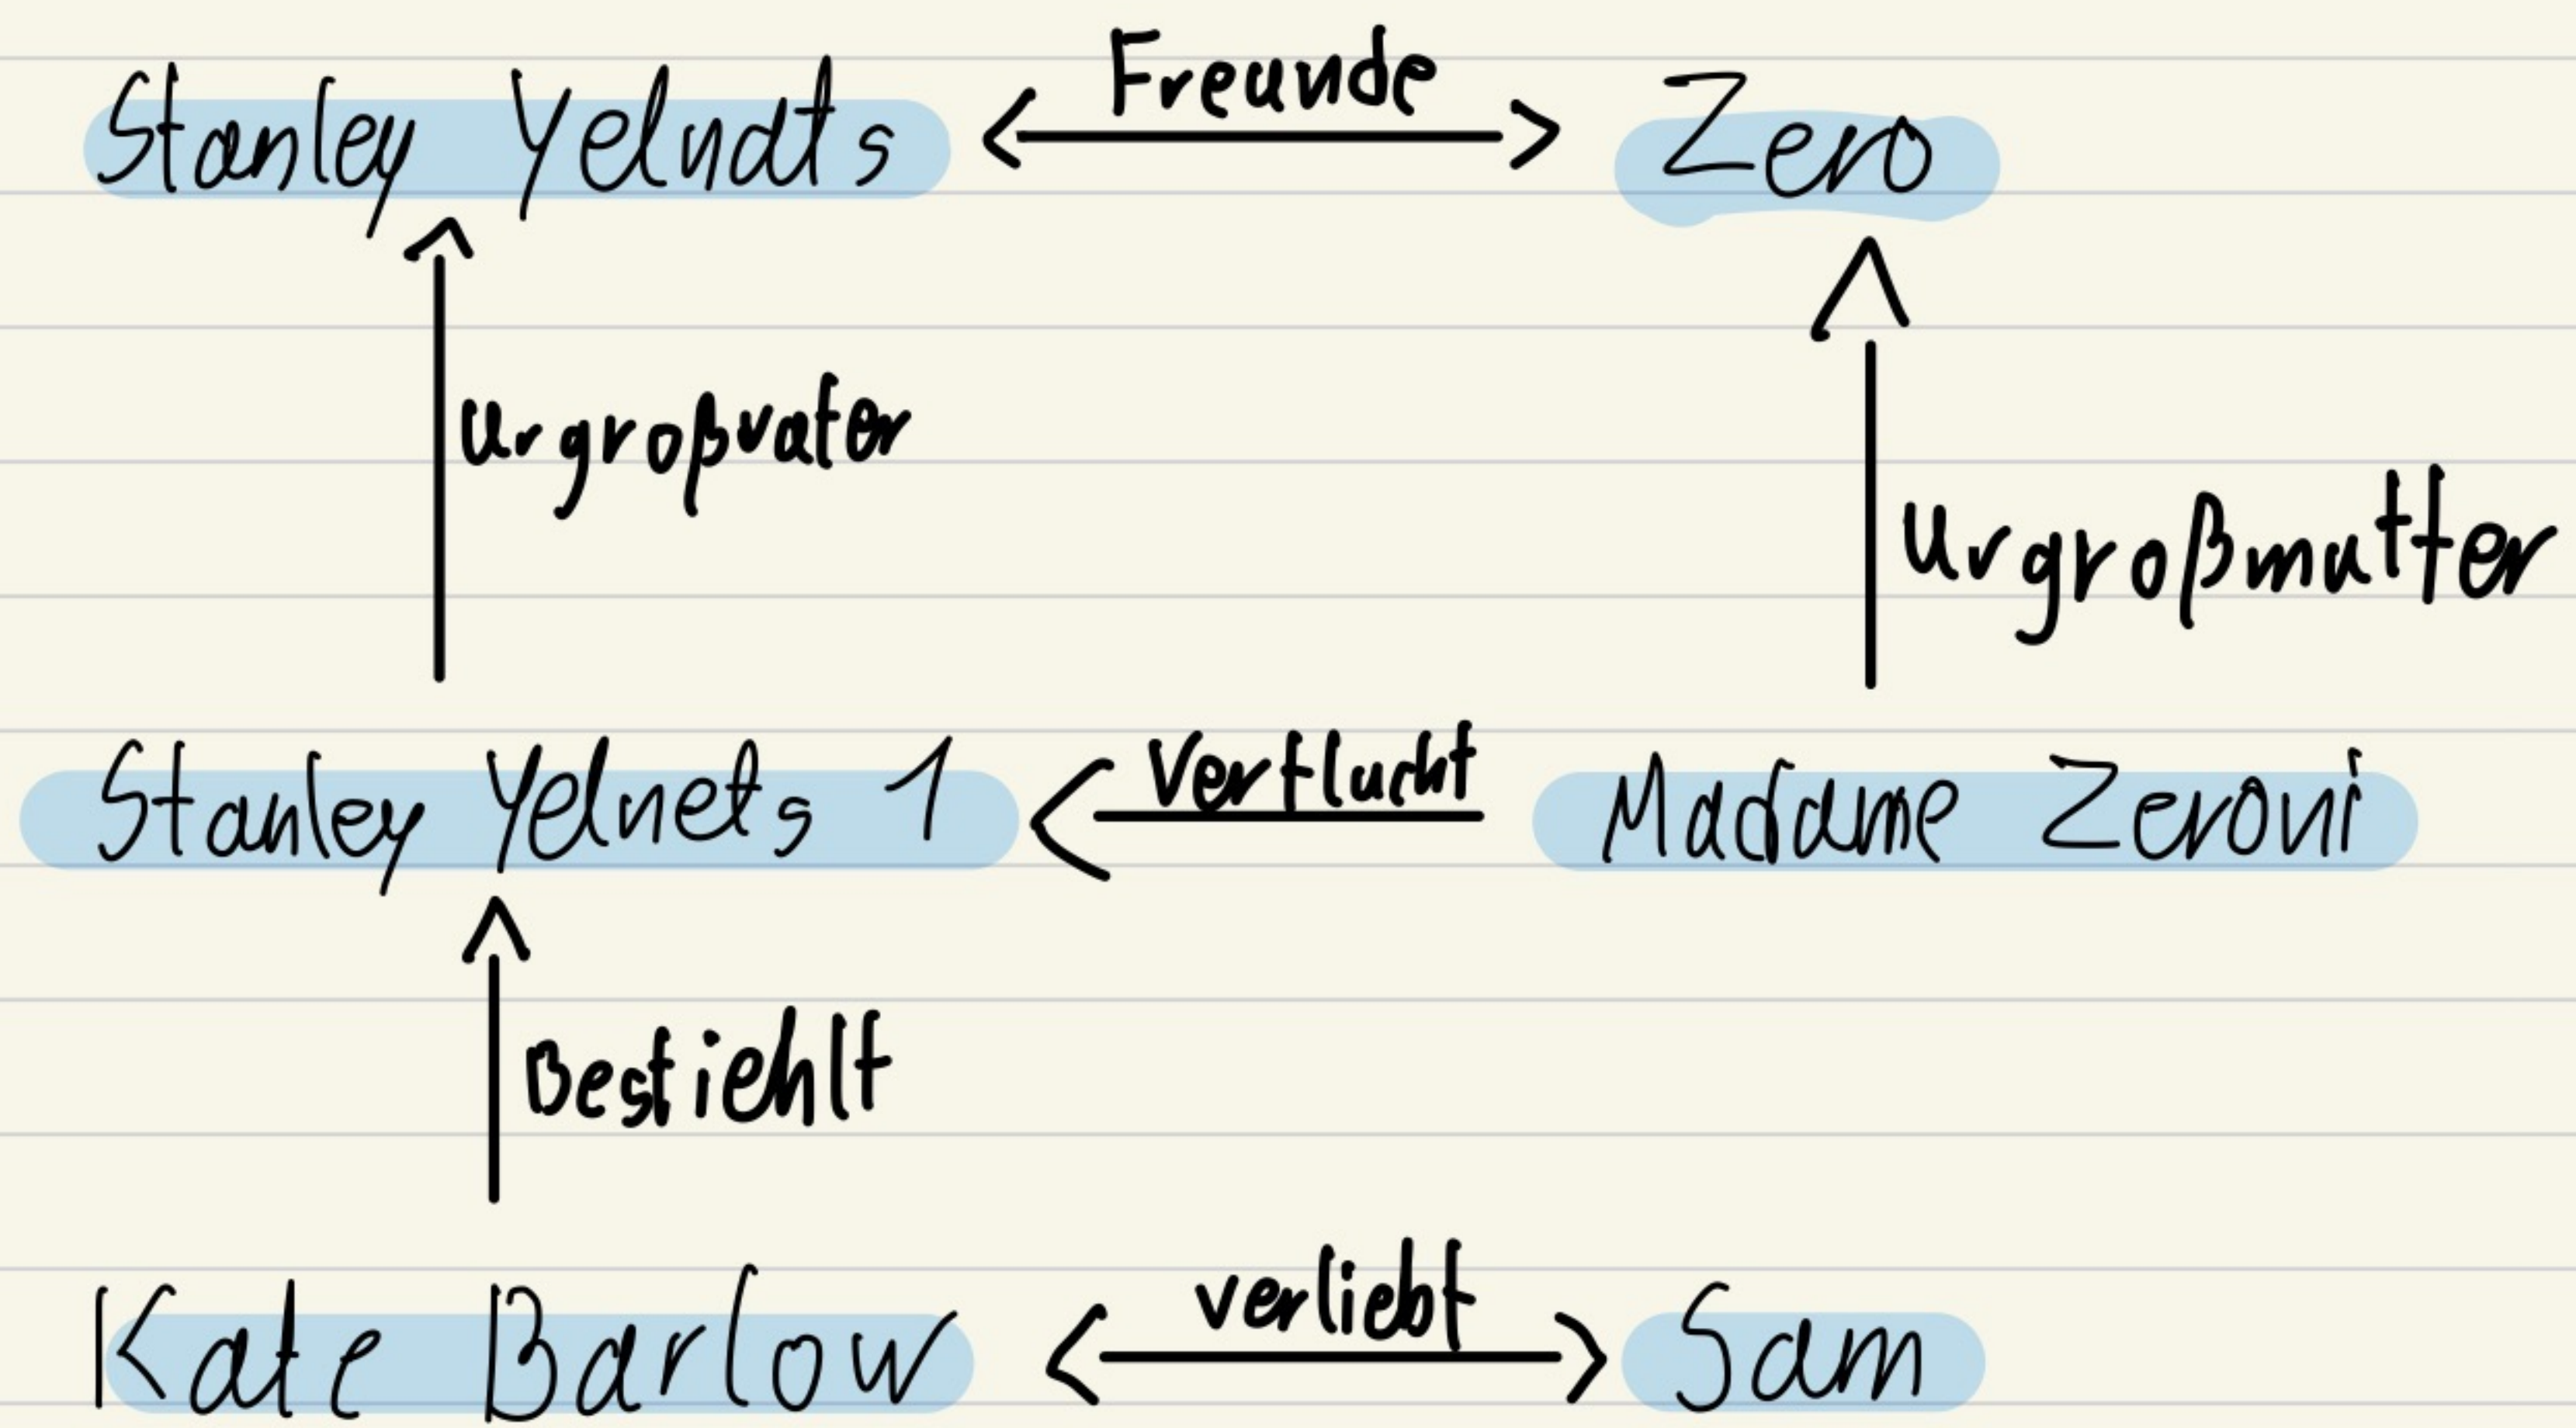 Stanley Yelndts Freunde Zero
Urgroßvater
Urgroßmutter
Stanley Yelnets 1 Verflucht Madame Zeroni
Bestiehlt
Kate Barlow verliebt Sam